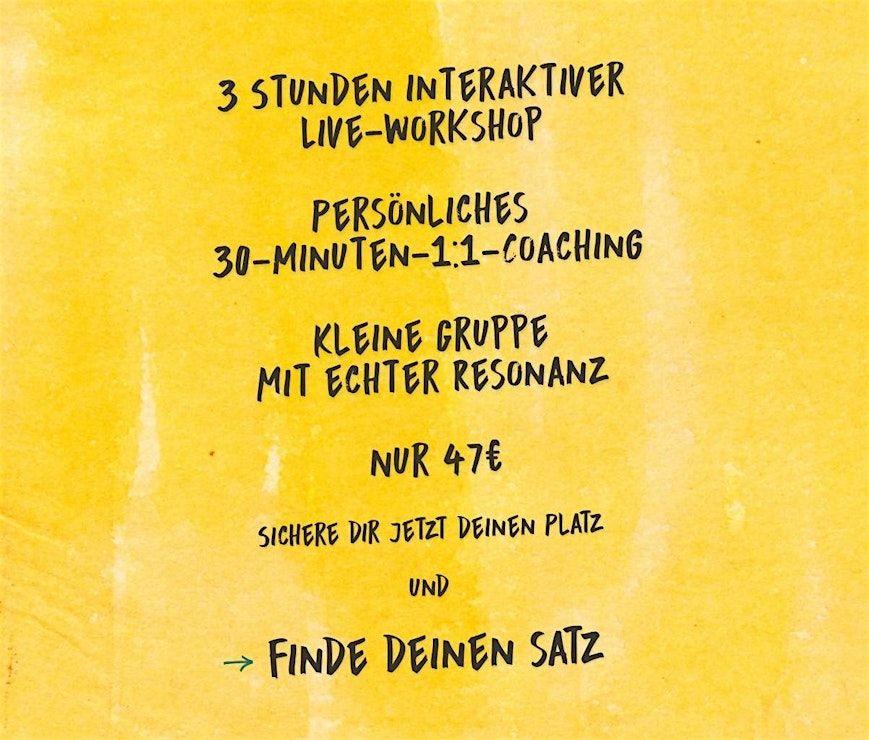 3 STUNDEN INTERAKTIVER
LIVE-WORKSHOP
PERSÖNLICHES
30-MINUTEN-1:1-COACHING
KLEINE GRUPPE
MIT ECHTER RESONANZ
NUR 47€
SICHERE DIR JETZT DEINEN PLATZ
UND
→ FINDE DEINEN SATZ